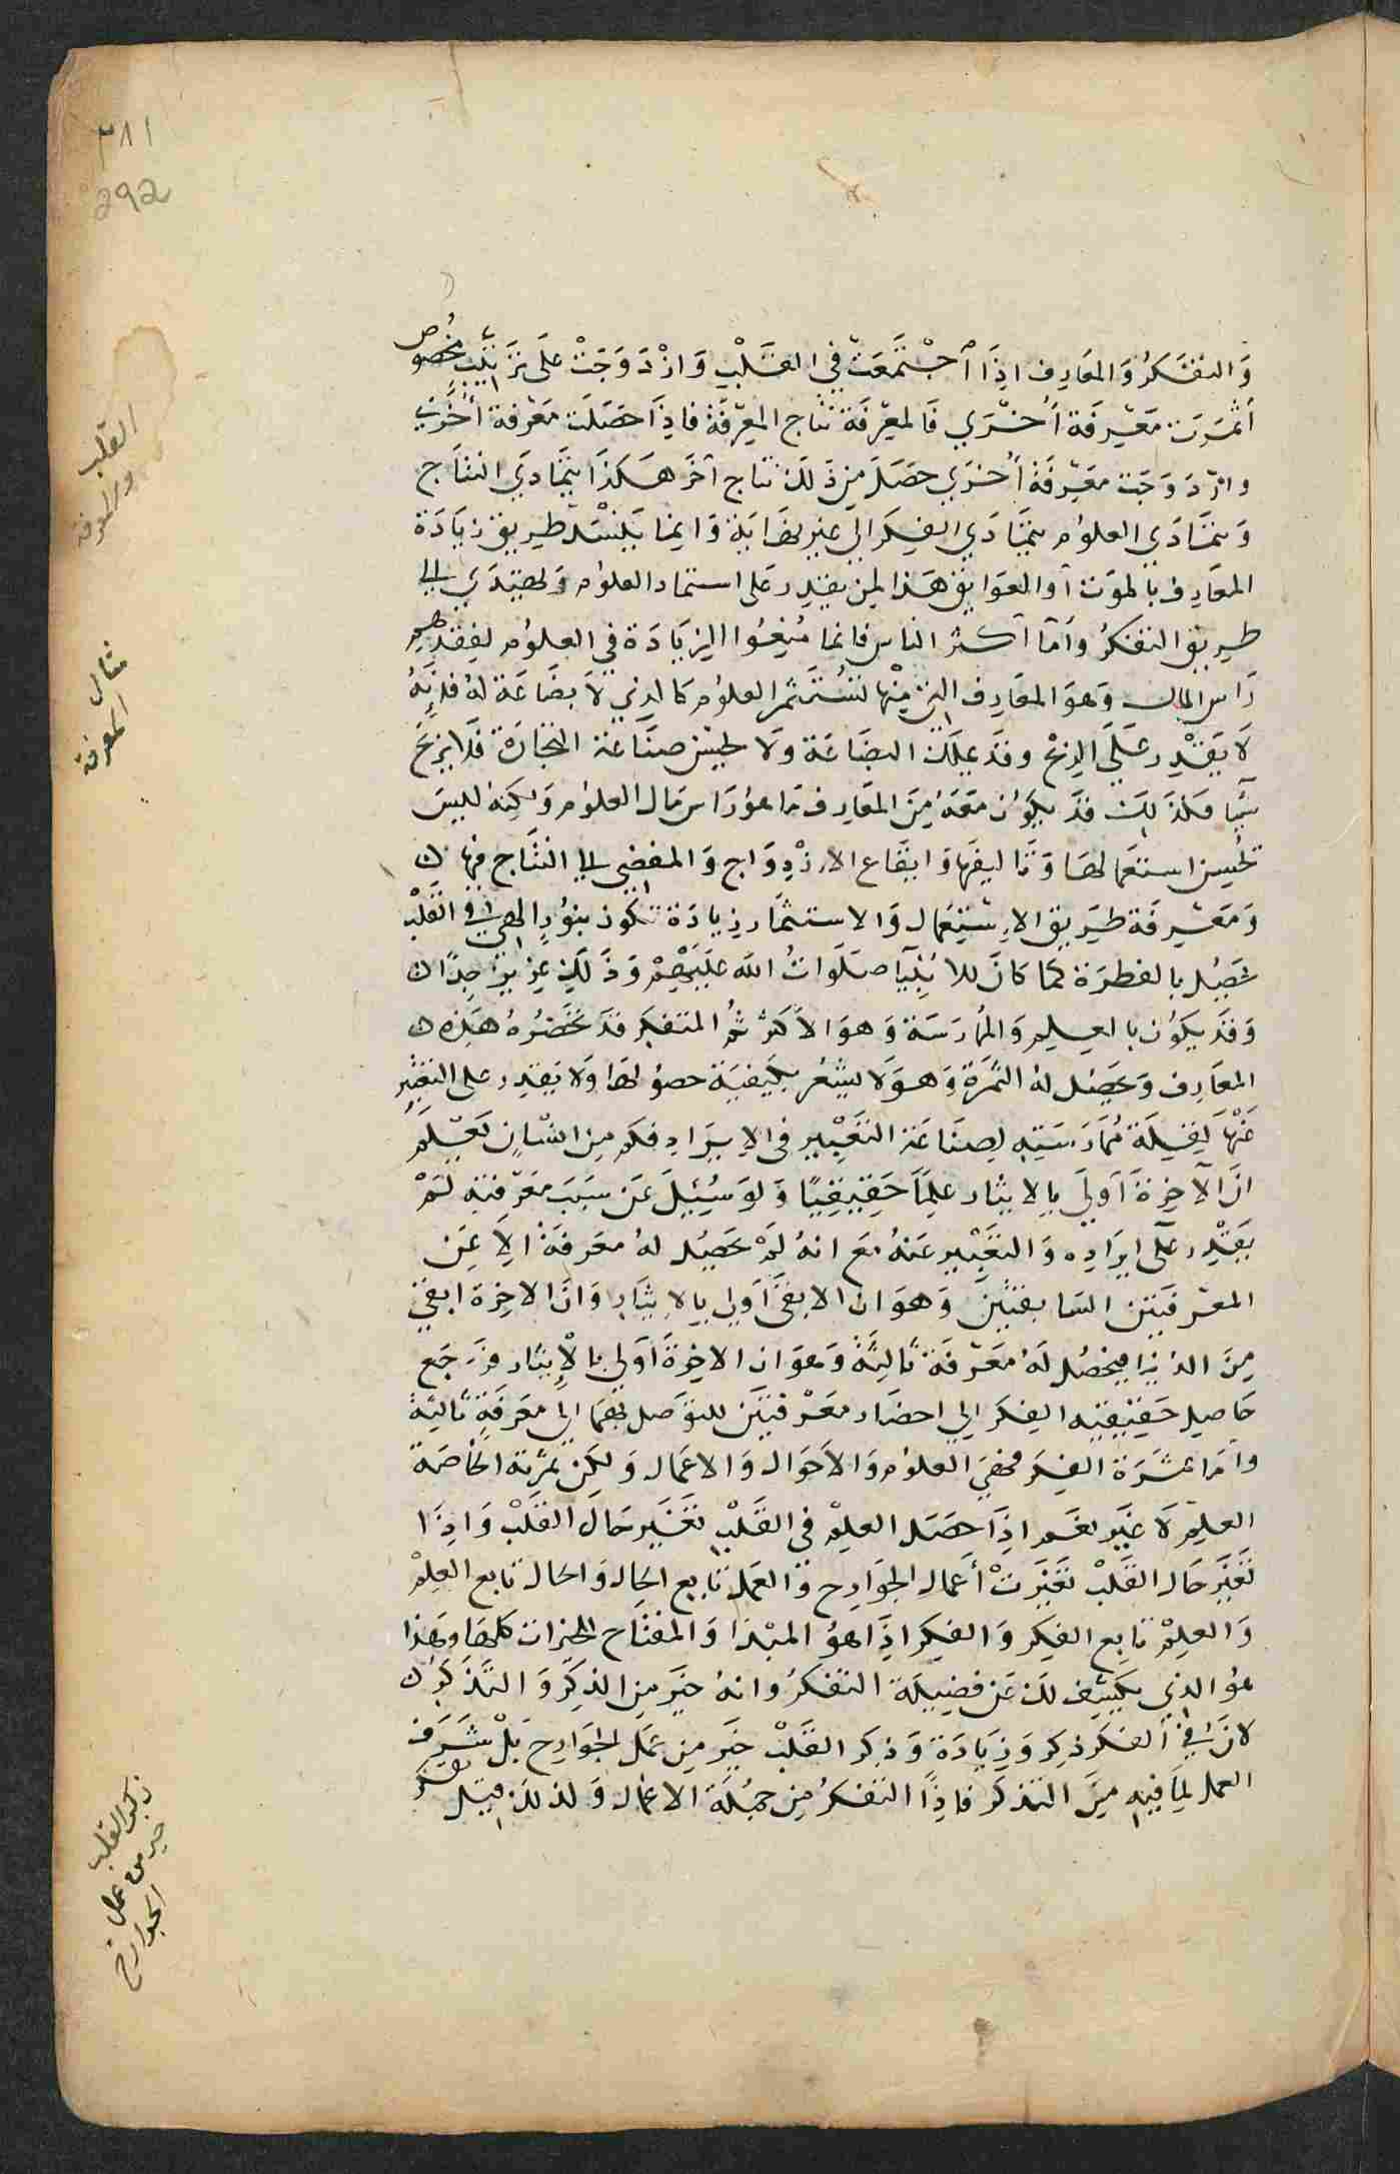 ٣٨١
292
وَالتفَكرُ وَالمعَارِف اذَا اجْتمَعَتْ في القَلْبِ وَازْدَوَجَتْ علَى تَرَتيْبٍ مخصُوص
أثمَرَت مَعْرِفَة أخْرَي فَالمعْرِفَة نتاج المعْرِفَة فاذَا حَصَلَت مَعْرفة أخْرَي
وازْدَوَجَت مَعْرِفَة أُخرَي حصَلَ من ذَلكَ نتاج آخَر هَكذَا يتمَادَي النتاج
وَيتمَادَي العلوُم يتمَادَي الفِكَر الي غير نهَايَة وَانما يَنْسَد طريق زيَادَة
المعَارِف بالموَت او العَوَايق هَذا لمن يقدر عَلى استثمار العلوُم وَيهتدَي الي
طريق التفكرُ وأمّا اكثر الناس فانما مُنعُوا الزيَادَة في العلوُم لفقدهم
رَاس المال وَهوَ المعَارِف التي مِنْها تُسْتَثمَر العلوُم كالذي لاَ بضَاعَة لهُ فانهُ
لاَ يَقْدِر عَلَى الرِبْح وقدَ يملك البضَاعَة وَلا يحسن صنَاعَة التجارَة فلا يَرْبَح
شيا فكذَلكَ قدَ يكوُن مَعَهُ مِنَ المعَارِف مَا هوُ رَاس مَال العلوُم وَلكِنهُ ليسَ
يحُسِن استعمالهَا وَتاليفَها وَايقَاع الازْدِوَاج وَالمفضِي الي النتَاج فيها ن
وَمَعْرِفَة طَرَيق الاِسْتِعَمال وَالاستثمَار زيادَة تكون بنوُرٍ الهي في القَلْب
يحَصُل بالفطرَة كمَا كانَ للانْبيَا صَلوَاتُ الله عليَهِمْ وَذَلكَ عزيزَ جدًا ن
وَقدَ يكَوُن بالعلم وَالمُمارَسَة وَهوَ الاَكثْر ثُم المتفكر قدَ تحَضُرهُ هَذِه ن
المعَارِف وَيحَصُل لهُ الثمَرة وَهوَ لا يشعُر بكيفيَة حصوُلها وَلا يَقدِر على التعْبِير
عَنْها لقِلَة مُمارَسَتِهِ لصِنَاعَة التعْبِير في الايرَاد فكم من انسْان يعْلَمَ
انَ الآخِرَة أوليَ بالايثار علِمَا حَقِيقِيًا وَلوَ سُئِلَ عَن سَبَبَ مَعْرِفَته لَمْ
يَقْدِر علَى ايرَادِه وَالتعْبِير عَنهُ مَعَ انهُ لَمْ يحَصُل لهُ معَرفَة الاِ عَن
المعْرفَتين السَابقتيْن وَهوَ انَ الابقىَ أولي بالايثَار وَانَ الاخِرَة ابقىَ
مِنَ الدُنيا فيحصُل لَهُ مَعْرفَة ثالِثَة وَهوَ ان الاخِرَة أَولي بالاِيثار فرَجَع
حَاصِل حَقيْقة الفِكَر الي احضَار مَعْرفتين للتوَصل بهمَا الي معَرفَة ثالثة
وأمَا ثمَرَة الفِكر فهيَ العلوُم وَالاَحَوَال وَالاعمَال وَلكِن ثمَرته الخَاصَة
العلِمْ لاَ غيَر نَعَم اذَا حصَل العِلمْ في القَلْب تغَيَر حَالَ القَلْب وَاذَا
تَغيَر حَال القَلْب تغَيَرَتْ أعمال الجوَارِح فالعمَل تابع الحِال وَالحال تابع العِلمْ
وَالعلِمْ تابع الفِكَر وَالفِكَر اذًا هوُ المبْدَا وَالمفتَاح للخيرات كلهَا وَهذا
هوُ الذي يكَشِف لكَ عَن فضِيلَة التفكرُ وَانهُ خَيْر مِن الذكِر وَالتذَكُر ن
لانَ في الفكر ذكِر وَزيَادَة وَذِكر القَلْب خَير مِن عَمَل الجوَارِح بَلْ شَرَف
العمل لمِا فيهِ مِنَ التذكر فاذًا التفكرُ مِن جمُلَة الاعمال وَلذلكَ قيل تفكر
القلب
والمعرفة
مثال
المعرفة
ذكر القلب
خير من عمل
الجوارح